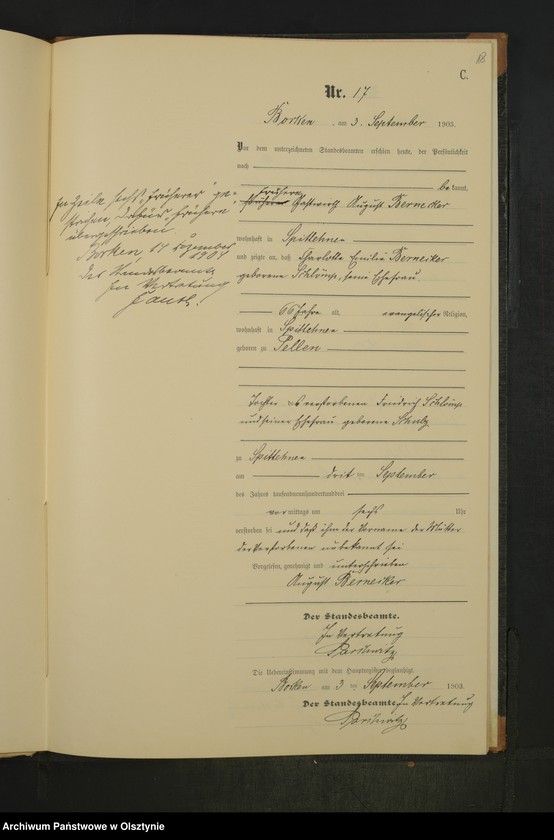 C.
Nr. 17
Borken am 3. September 1903.
Vor dem unterzeichneten Standesbeamten erschien heute, der Persönlichkeit
nach
bekannt,
frühere
frühere Gastwirth August Bernecker
wohnhaft in Spittehnen
und zeigte an, daß Charlotte Emilie Bernecker
geborene Schlömp, seine Ehefrau
66 Jahre alt, evangelischer Religion,
wohnhaft in Spittehnen
geboren zu Pellen
Tochter des verstorbenen Friedrich Schlömp
und seiner Ehefrau geborene Schulz
zu Spittehnen
am dritten September
des Jahres tausendneunhundertunddrei
vormittags um sechs Uhr
verstorben sei und daß ihm der Vorname der Mutter
der Verstorbenen unbekannt sei
Vorgelesen, genehmigt und unterschrieben
August Bernecker
Der Standesbeamte.
In Vertretung
Die Uebereinstimmung mit dem Hauptregister beglaubigt.
Borken am 3 ten September 1903.
Der Standesbeamte. In Vertretung
In Zeile sechs "frühere" ge-
strichen, dafür "frühere"
übergeschrieben
Borken, 17 Dezember
1904
Der Standesbeamte
In Vertretung
Archiwum Państwowe w Olsztynie